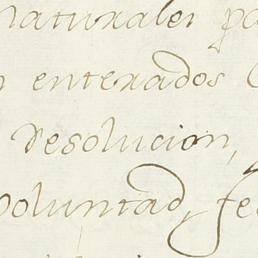 naturales pa
enterados
resolucion,
voluntad, fe